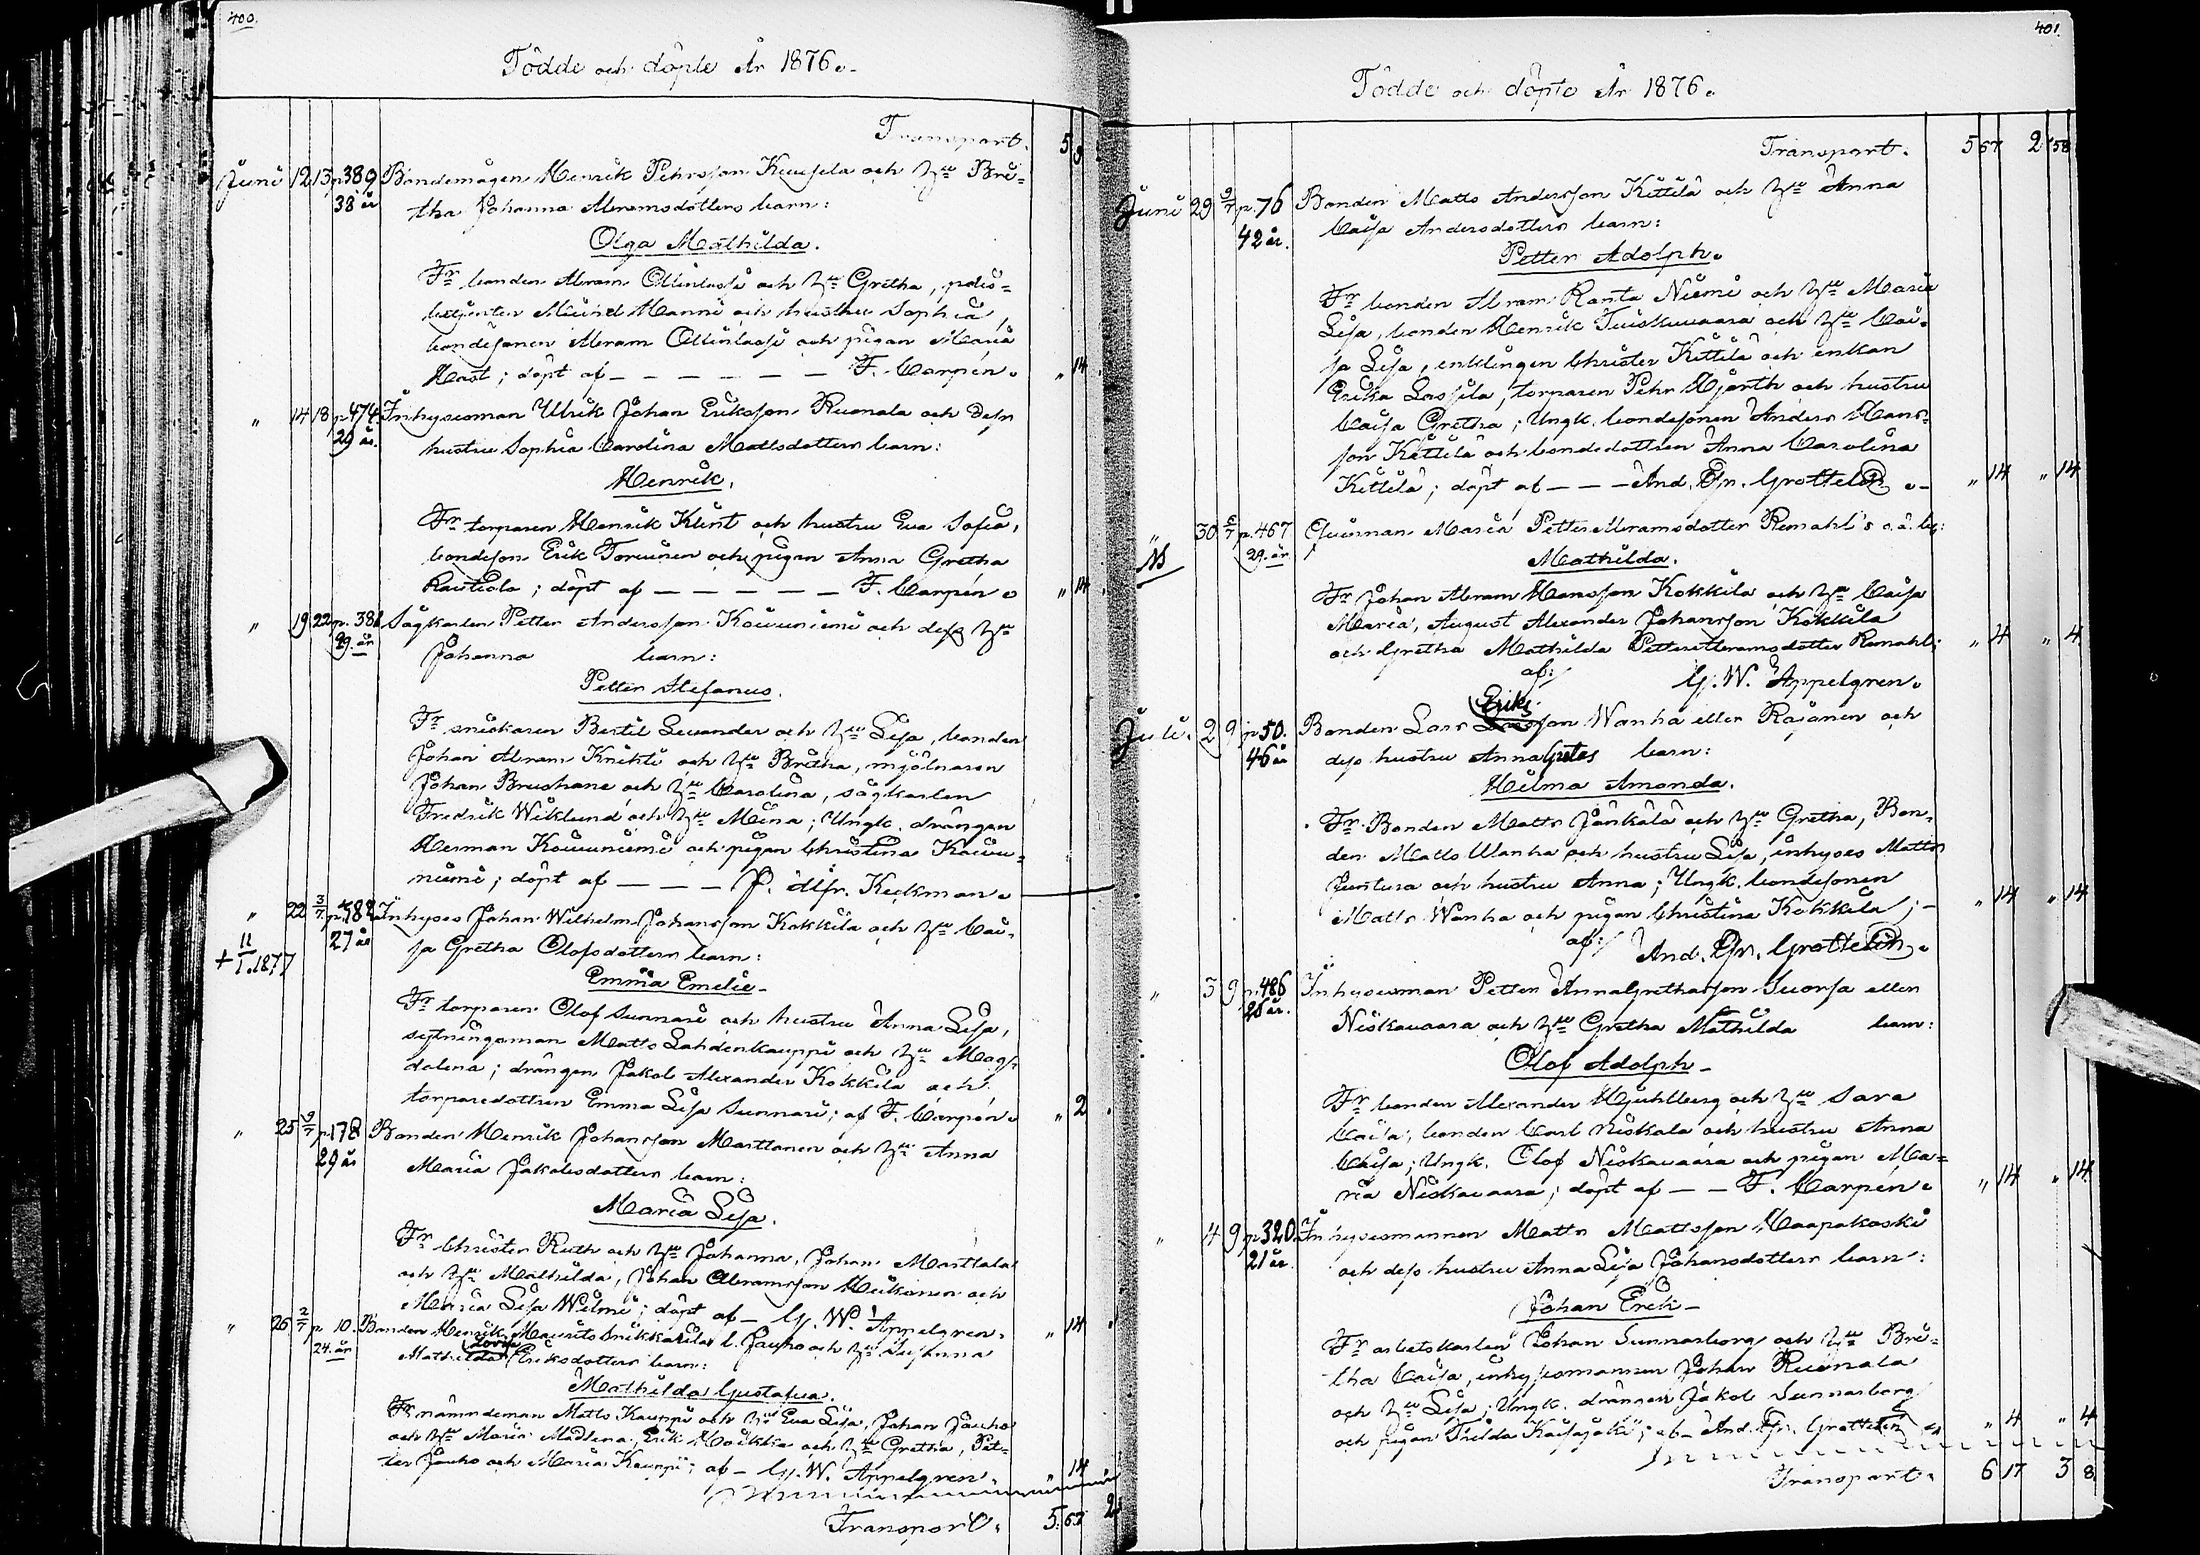 400.
Födde och döpte År 1876.
Transport. 5
Juni 12 13 p.389 Bondemågen Henrik Pehrsson Kuusela och H:u Bri-
38 år tha Johanna Abramsdotters barn:
Olga Mathilda.
Fr bonden Abram Ollinlassi och H:u Gretha,
bondesonen Abram Ollinlassi och pigan Maria
Hast; döpt af — — — — — — F. Carpén. " 14
" 14 18 p.474 Inhysesman Ulrik Johan Eriksson Ruonala och dess
29 år. hustru Sophia Carolina Mattsdotters barn:
Henrik.
Fr torparen Henrik Klint och hustru Eva Sofia,
bondeson Erik Torvinen och pigan Anna Gretha
Rautiola; döpt af — — — — — F. Carpén. " 14
" 19 22 p. 381 Sågkarlen Petter Andersson Koivuniemi och dess H:u
29. år Johanna barn:
Petter Stefanus.
Fr snickaren Bertil Levander och H:u Lisa, bonden
Johan Abram Knihti och H:u Britha, mjölnaren
Johan Brushane och H:u Carolina, sågkarlen
Fredrik Wiklund och H:u Mina; Ungk. drängen
Herman Koivuniemi och pigan Christina Koivu-
niemi; döpt af — — — J. Alfr. Keckman.
" 22 3/7 p.482 Inhyses Johan Wilhelm Johansson Kokkila och H:u Cai-
+ 11/1.1877 27 år sa Gretha Olofsdotters barn:
Emma Emelie-
Fr torparen Olof Sunnari och hustru Anna Lisa,
sytningsman Matts Lahdenkauppi och H:u Mag-
dalena; drängen Jakob Alexander Kokkila och
torparedottren Emma Lisa Sunnari; af F. Carpén. " 2
" 25 9/7 p.178 Bonden Henrik Johansson Marttanen och H:u Anna
29 år Maria Jakobsdotters barn:
Maria Lisa.
Fr Christer Ruth och H:u Johanna, Johan Marttala
och H:u Mathilda, Johan Abramsson Heikinen och
Maria Lisa Wilmi; döpt af — G. W. Appelgren. " 14
" 26 2/7 p. 10. Bonden Henrik Mauritsson l. Jauho och H:u Susanna
24. år Mathilda Lovisa Eriksdotters barn:
Mathilda Gustafva.
Fr nämndeman Matts Kauppi och H:u Eva Lisa, Johan Jauho
och H:u Maria Madlena, Erik och H:u Gretha, Pet-
ter Jauho och Maria Kauppi; af — G. W. Appelgren. " 14
Transport. 5.57 2
401.
Födde och döpte År 1876.
Transport. 5 57 2 58
Juni 29 9/7 p.76 Bonden Matts Andersson Kittilä och H:u Anna
42 år. Caisa Andersdotters barn:
Petter Adolph.
Fr bonden Abram Ranta Niemi och H:u Maria
Lisa, bonden Henrik Tuiskuvaara och H:u Cai-
sa Lisa, enklingen Christer Kittilä och enkan
Erika Lassila, torparen Pehr Hjorth och hustru
Caisa Gretha; Ungk. bondesonen Anders Hans-
son Kittilä och bondedottren Anna Carolina
Kittilä; döpt af — — — And. Grottelin. " 14 " 14
" 30 p.467 Qvinnan Maria Petter Abramsdotter Remahl's o.ä. b.:
29. år
Mathilda.
Fr Johan Abram Hansson Kokkila och H:u Caisa
Maria, August Alexander Johansson Kokkila
och Gretha Mathilda Petter Abramsdotter Remahl; " 4 " 4
af: G. W. Appelgren.
Juli. 2 9 p.50. Bonden Lars Eriksson Wanha eller Rajanen och
46 år dess hustru Anna Gretas barn:
Hilma Amanda.
Fr. Bonden Matts Jänkälä och H:u Gretha, Bon-
den Matts Wanha och hustru Lisa, inhyses Matts
Juntura och hustru Anna; Ungk. bondesonen
Matts Wanha och pigan Christina Kokkila; — " 14 " 14
af: And. Grottelin.
" 3 9 p.486 Inhysesman Petter Annagrethasson Suorsa eller
25 år. Niskavaara och H:u Gretha Mathilda barn:
Olof Adolph —
Fr bonden Alexander Hjuhlberg och H:u Sara
Caisa, bonden Carl Niskala och hustru Anna
Caisa; Ungk. Olof Niskavaara och pigan Ma-
ria Niskavaara; döpt af — — F. Carpén. " 14 " 14
" 4 9 p.320. Inhysesmannen Matts Mattsson Haapakoski
21 år och dess hustru Anna Lisa Johansdotters barn:
Johan Erik —
Fr arbetskarlen Johan Sunnarborg och H:u Bri-
tha Caisa, inhysesmannen Johan Ruonala
och H:u Lisa; Ungk. drängen Jakob Sunnarborg
och pigan Thilda Kaisajoki; af — And. Grottelin " 4 " 4
Transport. 6 17 3 8